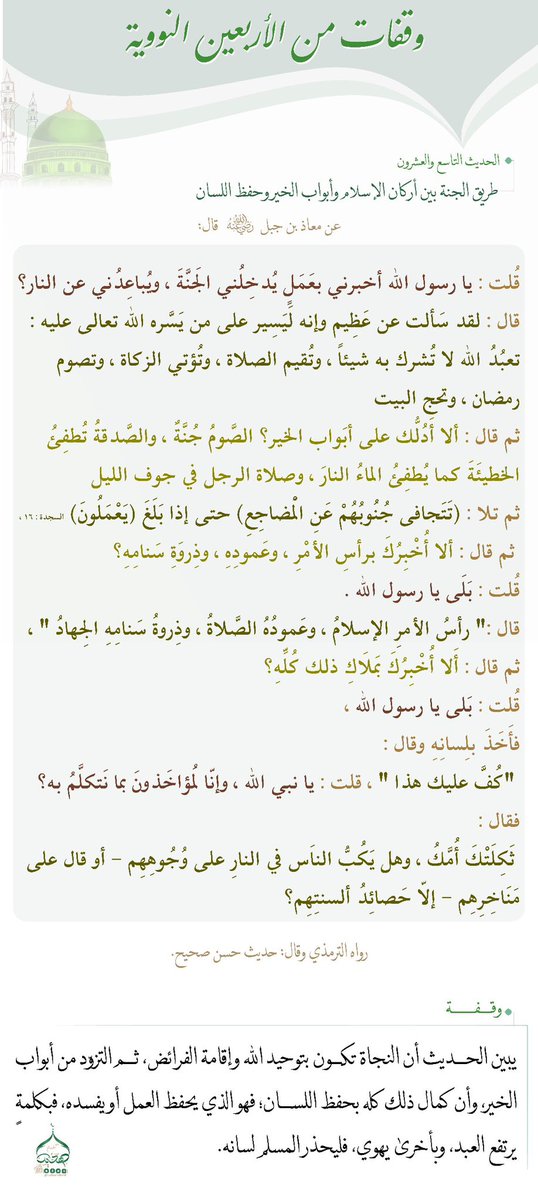 وقفات من الأربعين النووية
الحديث التاسع والعشرون
طريق الجنة بين أركان الإسلام وأبواب الخير وحفظ اللسان
عن معاذ بن جبل رضي الله عنه قال:
قُلت : يا رسول الله أخبرني بعَمَلٍ يُدخِلُني الجَنَّةَ ، ويُباعِدُني عن النار؟
قال : لقد سَألت عن عَظِيمٍ وإنه لَيَسِير على من يَسَّره الله تعالى عليه :
تعبُدُ الله لا تُشرك به شيئاً ، وتُقيم الصلاة ، وتُؤتي الزكاة ، وتصوم
رمضان ، وتحج البيت
ثم قال : ألا أدُلُّك على أبَواب الخير؟ الصَّومُ جُنَّةٌ ، والصَّدقةُ تُطفِئُ
الخطيئَةَ كما يُطفِئُ الماءُ النارَ ، وصلاة الرجل في جوف الليل
ثم تلا : (تَتَجافى جُنُوبُهُمْ عَنِ الْمَضاجِعِ) حتى إذا بَلَغَ (يَعْمَلُونَ) السجدة : ١٦ ،
ثم قال : ألا أُخْبِرُكَ برأسِ الأمْرِ ، وعَمودِهِ ، وذِروَةِ سَنامِهِ؟
قُلت : بَلَى يا رسول الله .
قال :" رأسُ الأمرِ الإسلامُ ، وعَمودُهُ الصَّلاةُ ، وذِروةُ سَنامِهِ الجِهادُ " ،
ثم قال : أَلا أُخْبِرُكَ بمَلاكِ ذلك كُلِّهِ؟
قُلت : بَلى يا رسول الله ،
فأَخَذَ بلِسانِهِ وقال :
"كُفَّ عليك هذا " ، قلت : يا نبي الله ، وإنّا لمُؤاخَذونَ بما نَتكلَّمُ به؟
فقال :
ثَكِلَتْكَ أُمُّكُ ، وهل يَكُبُّ الناَس في النارِ على وُجُوهِهِم – أو قال على
مَنَاخِرِهِم – إلاّ حَصائِدُ ألسنتِهِم؟
رواه الترمذي وقال: حديث حسن صحيح.
وقـفـــة
يبين الحـديث أن النجاة تكـون بتوحيد الله وإقامة الفرائض، ثـم التزود من أبواب
الخير، وأن كمال ذلك كله بحفظ اللسـان؛ فهو الذي يحفظ العمل أو يفسده، فبكلمةٍ
يرتفع العبد، وبأخرىٰ يهوي، فليحذر المسلم لسانه.